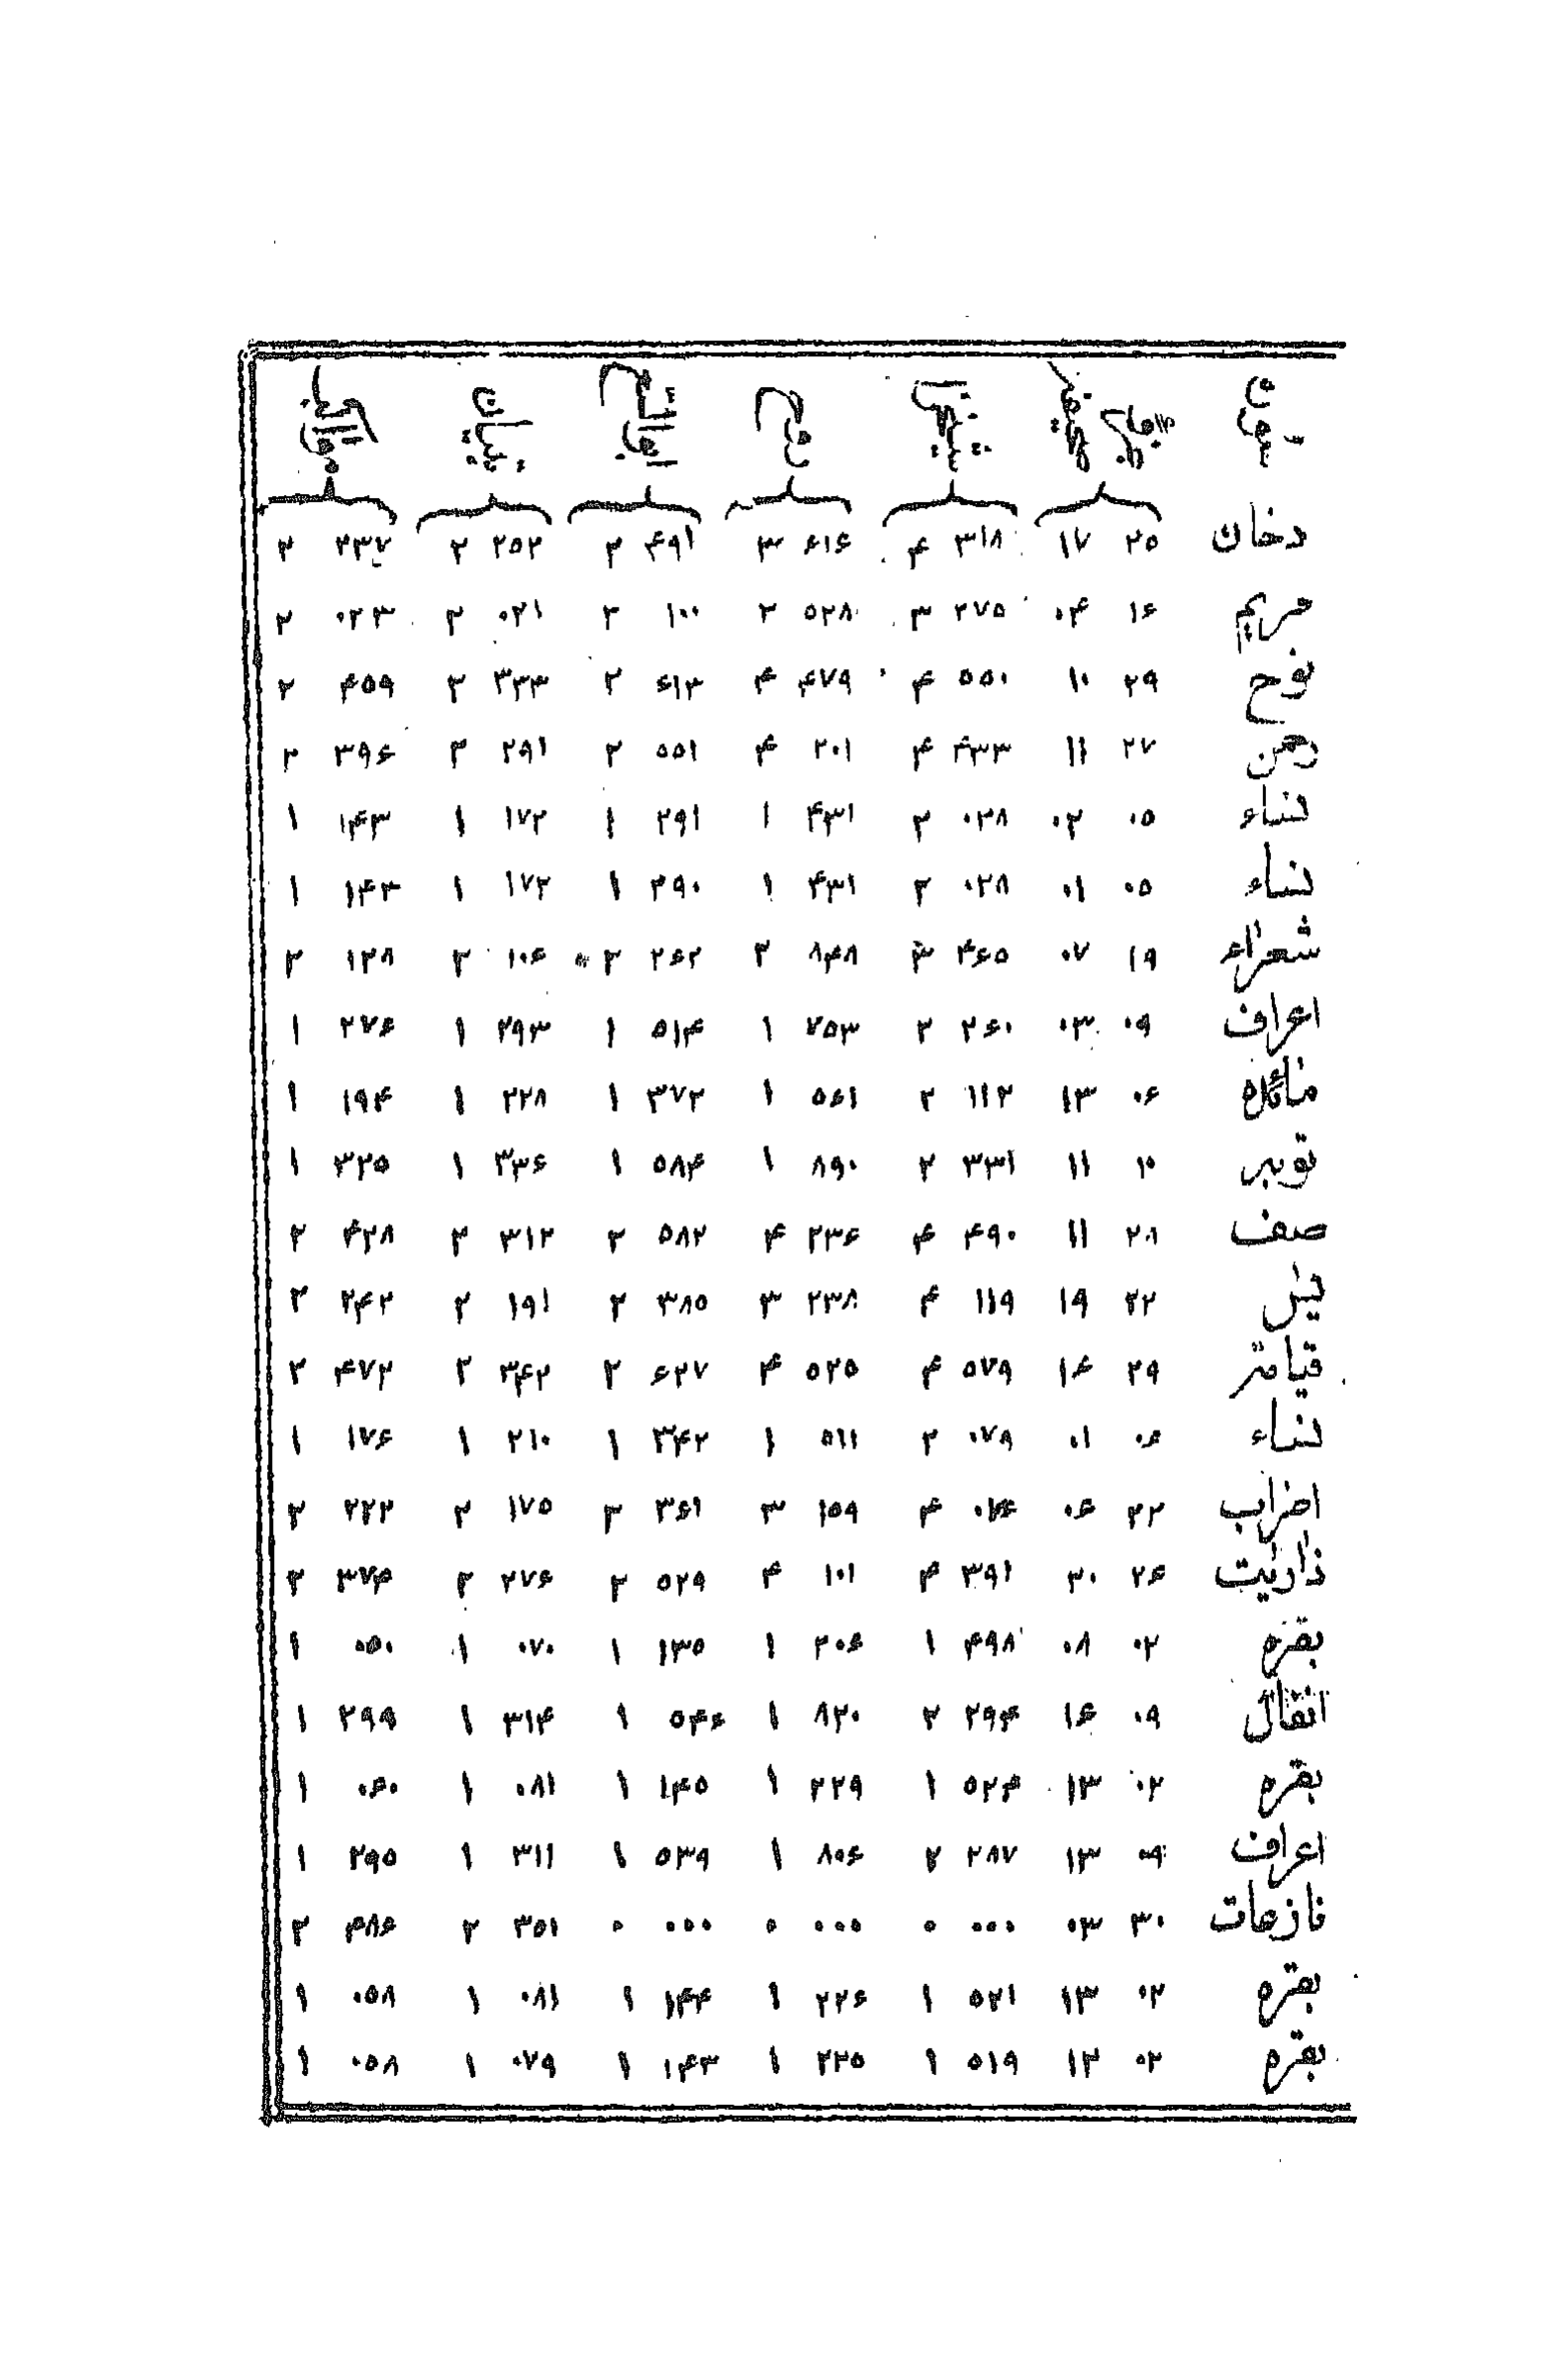 دخان ۲۵ ۱۷ ۳۱۸ ۴ ۶۱۶ ۳ ۴۹۱ ۲ ۲۵۲ ۲ ۳۳۷ ۲
مریم ۱۶ ۰۴ ۲۷۵ ۳ ۵۲۸ ۲ ۱۰۰ ۲ ۰۲۱ ۲ ۰۲۳ ۲
نوح ۲۹ ۱۰ ۵۵۰ ۴ ۴۷۹ ۴ ۶۱۳ ۲ ۳۳۴ ۲ ۴۵۹ ۲
رحمن ۲۷ ۱۱ ۴۳۳ ۴ ۲۰۱ ۴ ۵۵۱ ۲ ۲۹۱ ۲ ۳۹۶ ۲
نساء ۰۵ ۰۲ ۰۲۸ ۲ ۴۳۱ ۱ ۲۹۱ ۱ ۱۷۲ ۱ ۱۴۳ ۱
نساء ۰۵ ۰۱ ۰۲۸ ۲ ۴۳۱ ۱ ۲۹۰ ۱ ۱۷۲ ۱ ۱۴۳ ۱
شعراء ۱۹ ۰۷ ۴۶۵ ۳ ۸۴۸ ۲ ۲۶۲ ۲ ۱۰۶ ۲ ۱۲۸ ۲
اعراف ۰۹ ۰۳ ۲۶۰ ۲ ۷۵۳ ۱ ۵۱۴ ۱ ۲۹۳ ۱ ۲۷۶ ۱
مائده ۰۶ ۱۳ ۱۱۲ ۲ ۵۶۱ ۱ ۳۷۲ ۱ ۲۲۸ ۱ ۱۹۴ ۱
توبه ۱۰ ۱۱ ۳۳۱ ۲ ۸۹۰ ۱ ۵۸۴ ۱ ۳۳۶ ۱ ۳۲۵ ۱
صف ۲۸ ۱۱ ۴۹۰ ۴ ۲۳۶ ۴ ۵۸۲ ۲ ۳۱۲ ۲ ۴۲۸ ۲
یٰس ۲۲ ۱۹ ۱۱۹ ۴ ۲۳۸ ۳ ۳۸۵ ۲ ۱۹۱ ۲ ۲۴۲ ۲
قیامة ۲۹ ۱۶ ۵۷۹ ۴ ۵۲۵ ۴ ۶۲۷ ۲ ۳۴۲ ۲ ۴۷۲ ۲
نساء ۰۶ ۰۱ ۰۷۹ ۲ ۵۱۱ ۱ ۳۴۲ ۱ ۲۱۰ ۱ ۱۷۶ ۱
احزاب ۲۲ ۰۶ ۴ ۱۵۹ ۳ ۳۶۱ ۲ ۱۷۵ ۲ ۲۲۲ ۲
ذاریٰت ۲۶ ۲۰ ۳۹۱ ۴ ۱۰۱ ۴ ۵۲۹ ۲ ۲۷۶ ۲ ۳۷۴ ۲
بقره ۰۲ ۰۸ ۴۹۸ ۱ ۲۰۶ ۱ ۱۳۵ ۱ ۰۷۰ ۱ ۰۵۰ ۱
انفال ۰۹ ۱۶ ۲۹۴ ۲ ۸۲۰ ۱ ۵۴۶ ۱ ۳۱۴ ۱ ۲۹۹ ۱
بقره ۰۲ ۱۳ ۵۲۴ ۱ ۲۲۹ ۱ ۱۴۵ ۱ ۰۸۱ ۱ ۰۶۰ ۱
اعراف ۰۹ ۱۳ ۲۸۷ ۲ ۸۰۶ ۱ ۵۳۹ ۱ ۳۱۱ ۱ ۲۹۵ ۱
نازعات ۳۰ ۰۳ ۰۰۰ ۰ ۰۰۰ ۰ ۰۰۰ ۰ ۳۵۱ ۲ ۴۸۶ ۲
بقره ۰۲ ۱۳ ۵۲۱ ۱ ۲۲۶ ۱ ۱۴۴ ۱ ۰۸۱ ۱ ۰۵۸ ۱
بقره ۰۲ ۱۲ ۵۱۹ ۱ ۲۲۵ ۱ ۱۴۳ ۱ ۰۷۹ ۱ ۰۵۸ ۱